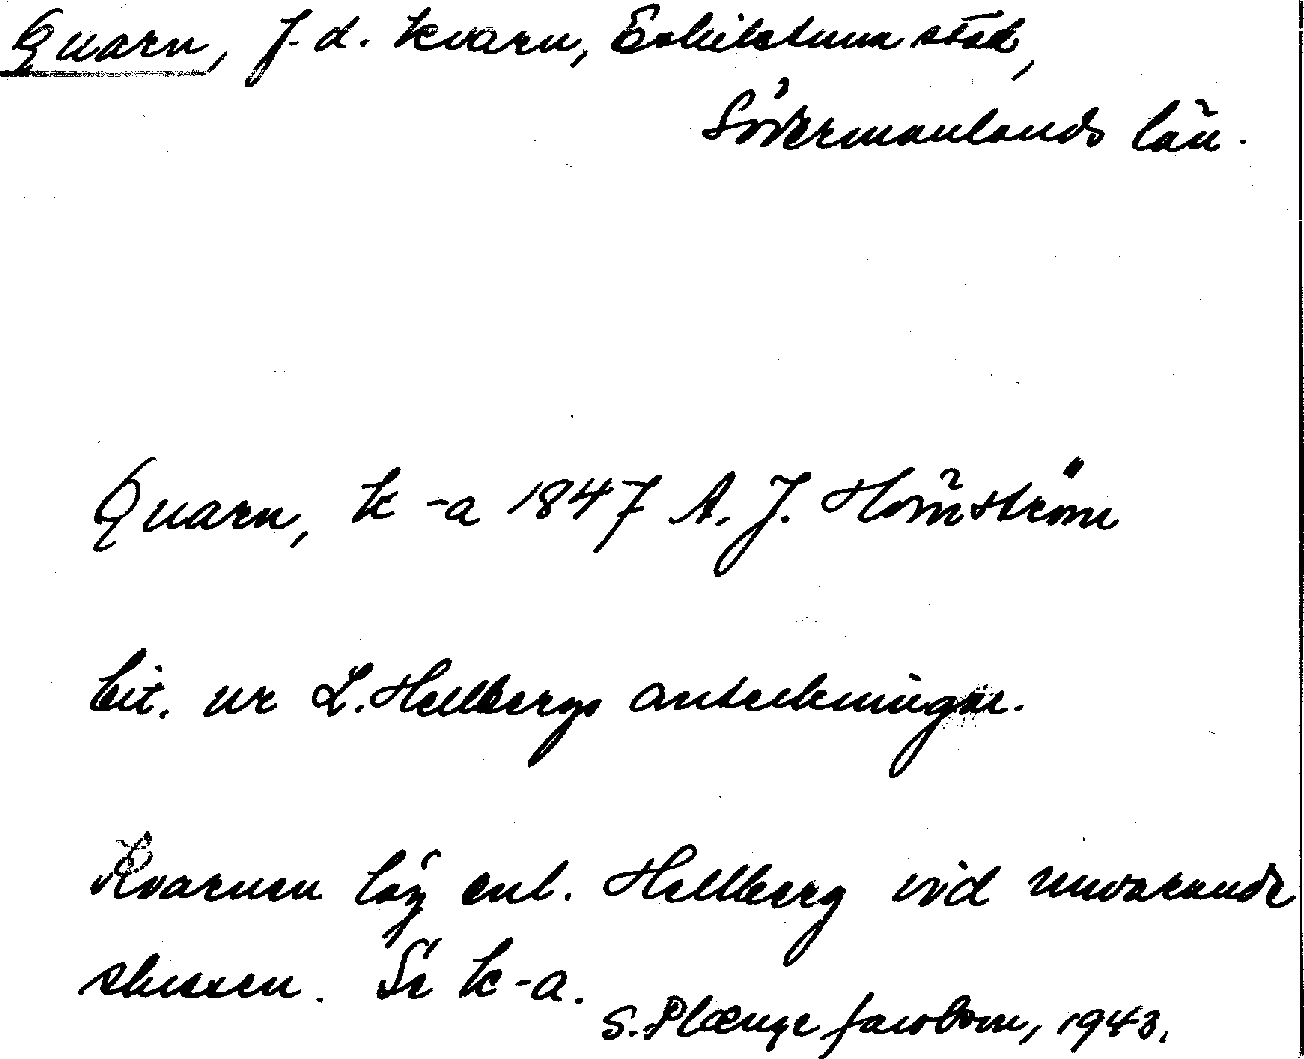 Quarn, f. d. kvarn, Eskilstuna stad,
Södermanlands län.
Quarn, k-a 1847 A. J. Hörnström
Cit. ur L. Hellbergs anteckningar.
Kvarnen låg enl. Hellberg vid nuvarande
slussen. Se k-a.
S. Plænge Jacobson, 1943.